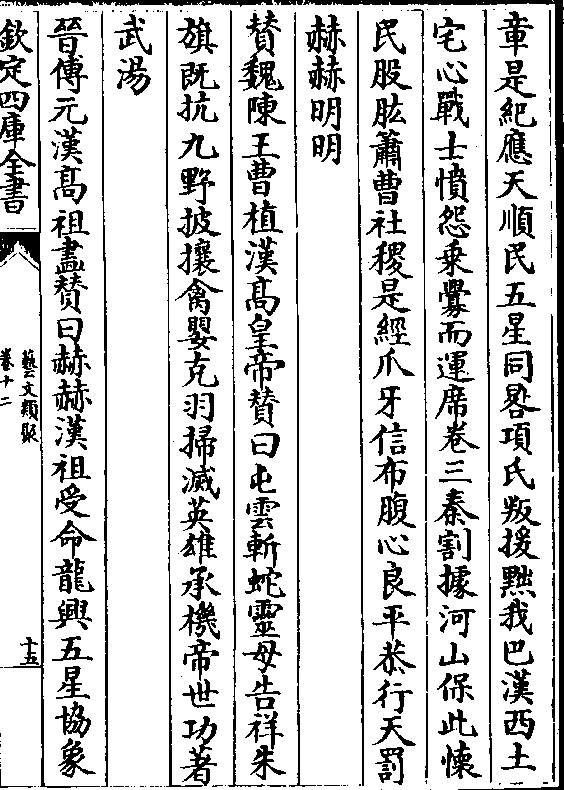 章是紀應天順民五星同晷項氏叛援黜我巴漢西土
宅心戰士憤怨乗釁而運席卷三秦割據河山保此懐
民股肱蕭曹社稷是經爪牙信布腹心良平恭行天罰
赫赫明明
賛魏陳王曹植漢髙皇帝賛曰屯雲斬蛇靈母告祥朱
旗既抗九野披攘禽嬰克羽掃滅英雄承機帝世功著
武湯
晉傅元漢髙祖畫賛曰赫赫漢祖受命龍興五星協象
欽定四庫全書
藝文類聚
卷十二
十五